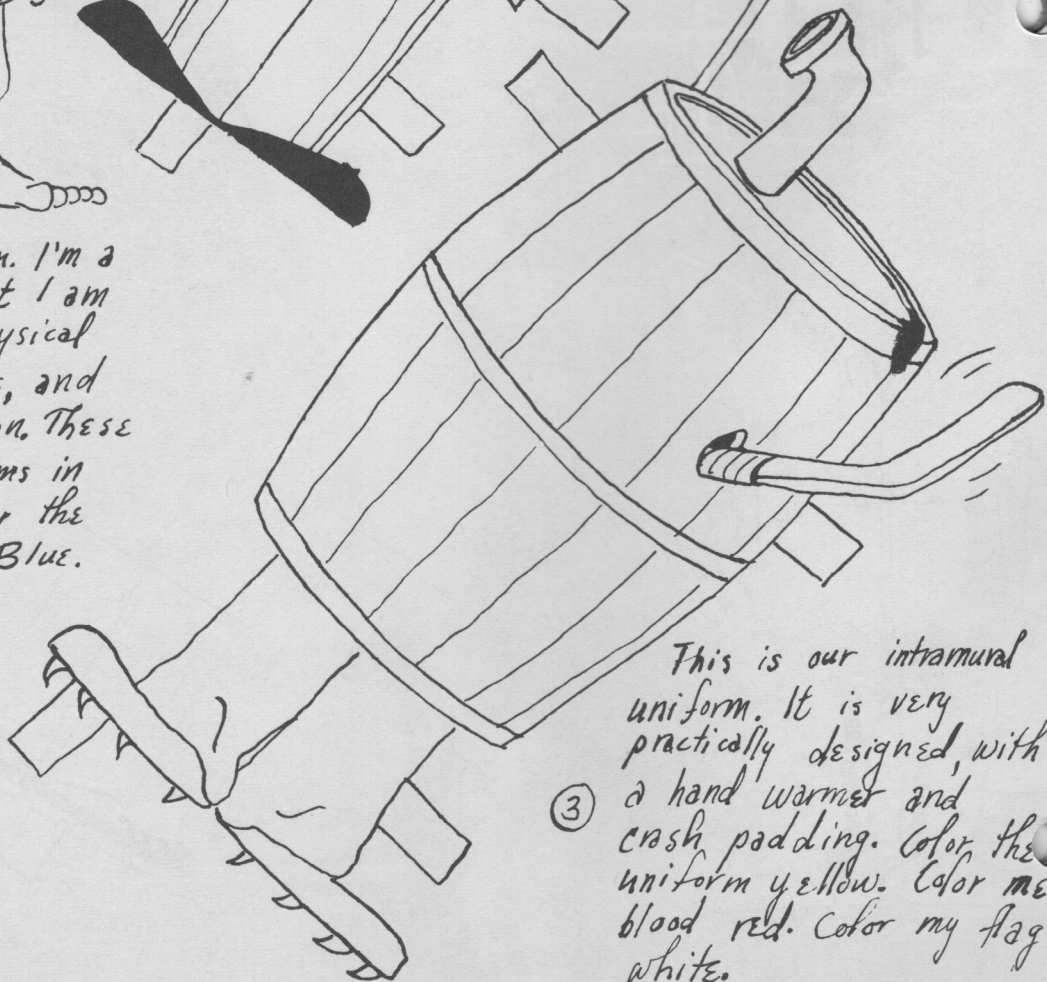 n. I'm a
t I am
ysical
, and
n. These
ms in
the
Blue.
This is our intramural
uniform. It is very
practically designed, with
a hand warmer and
crash padding. Color the
uniform yellow. Color me
blood red. Color my flag
white.
3